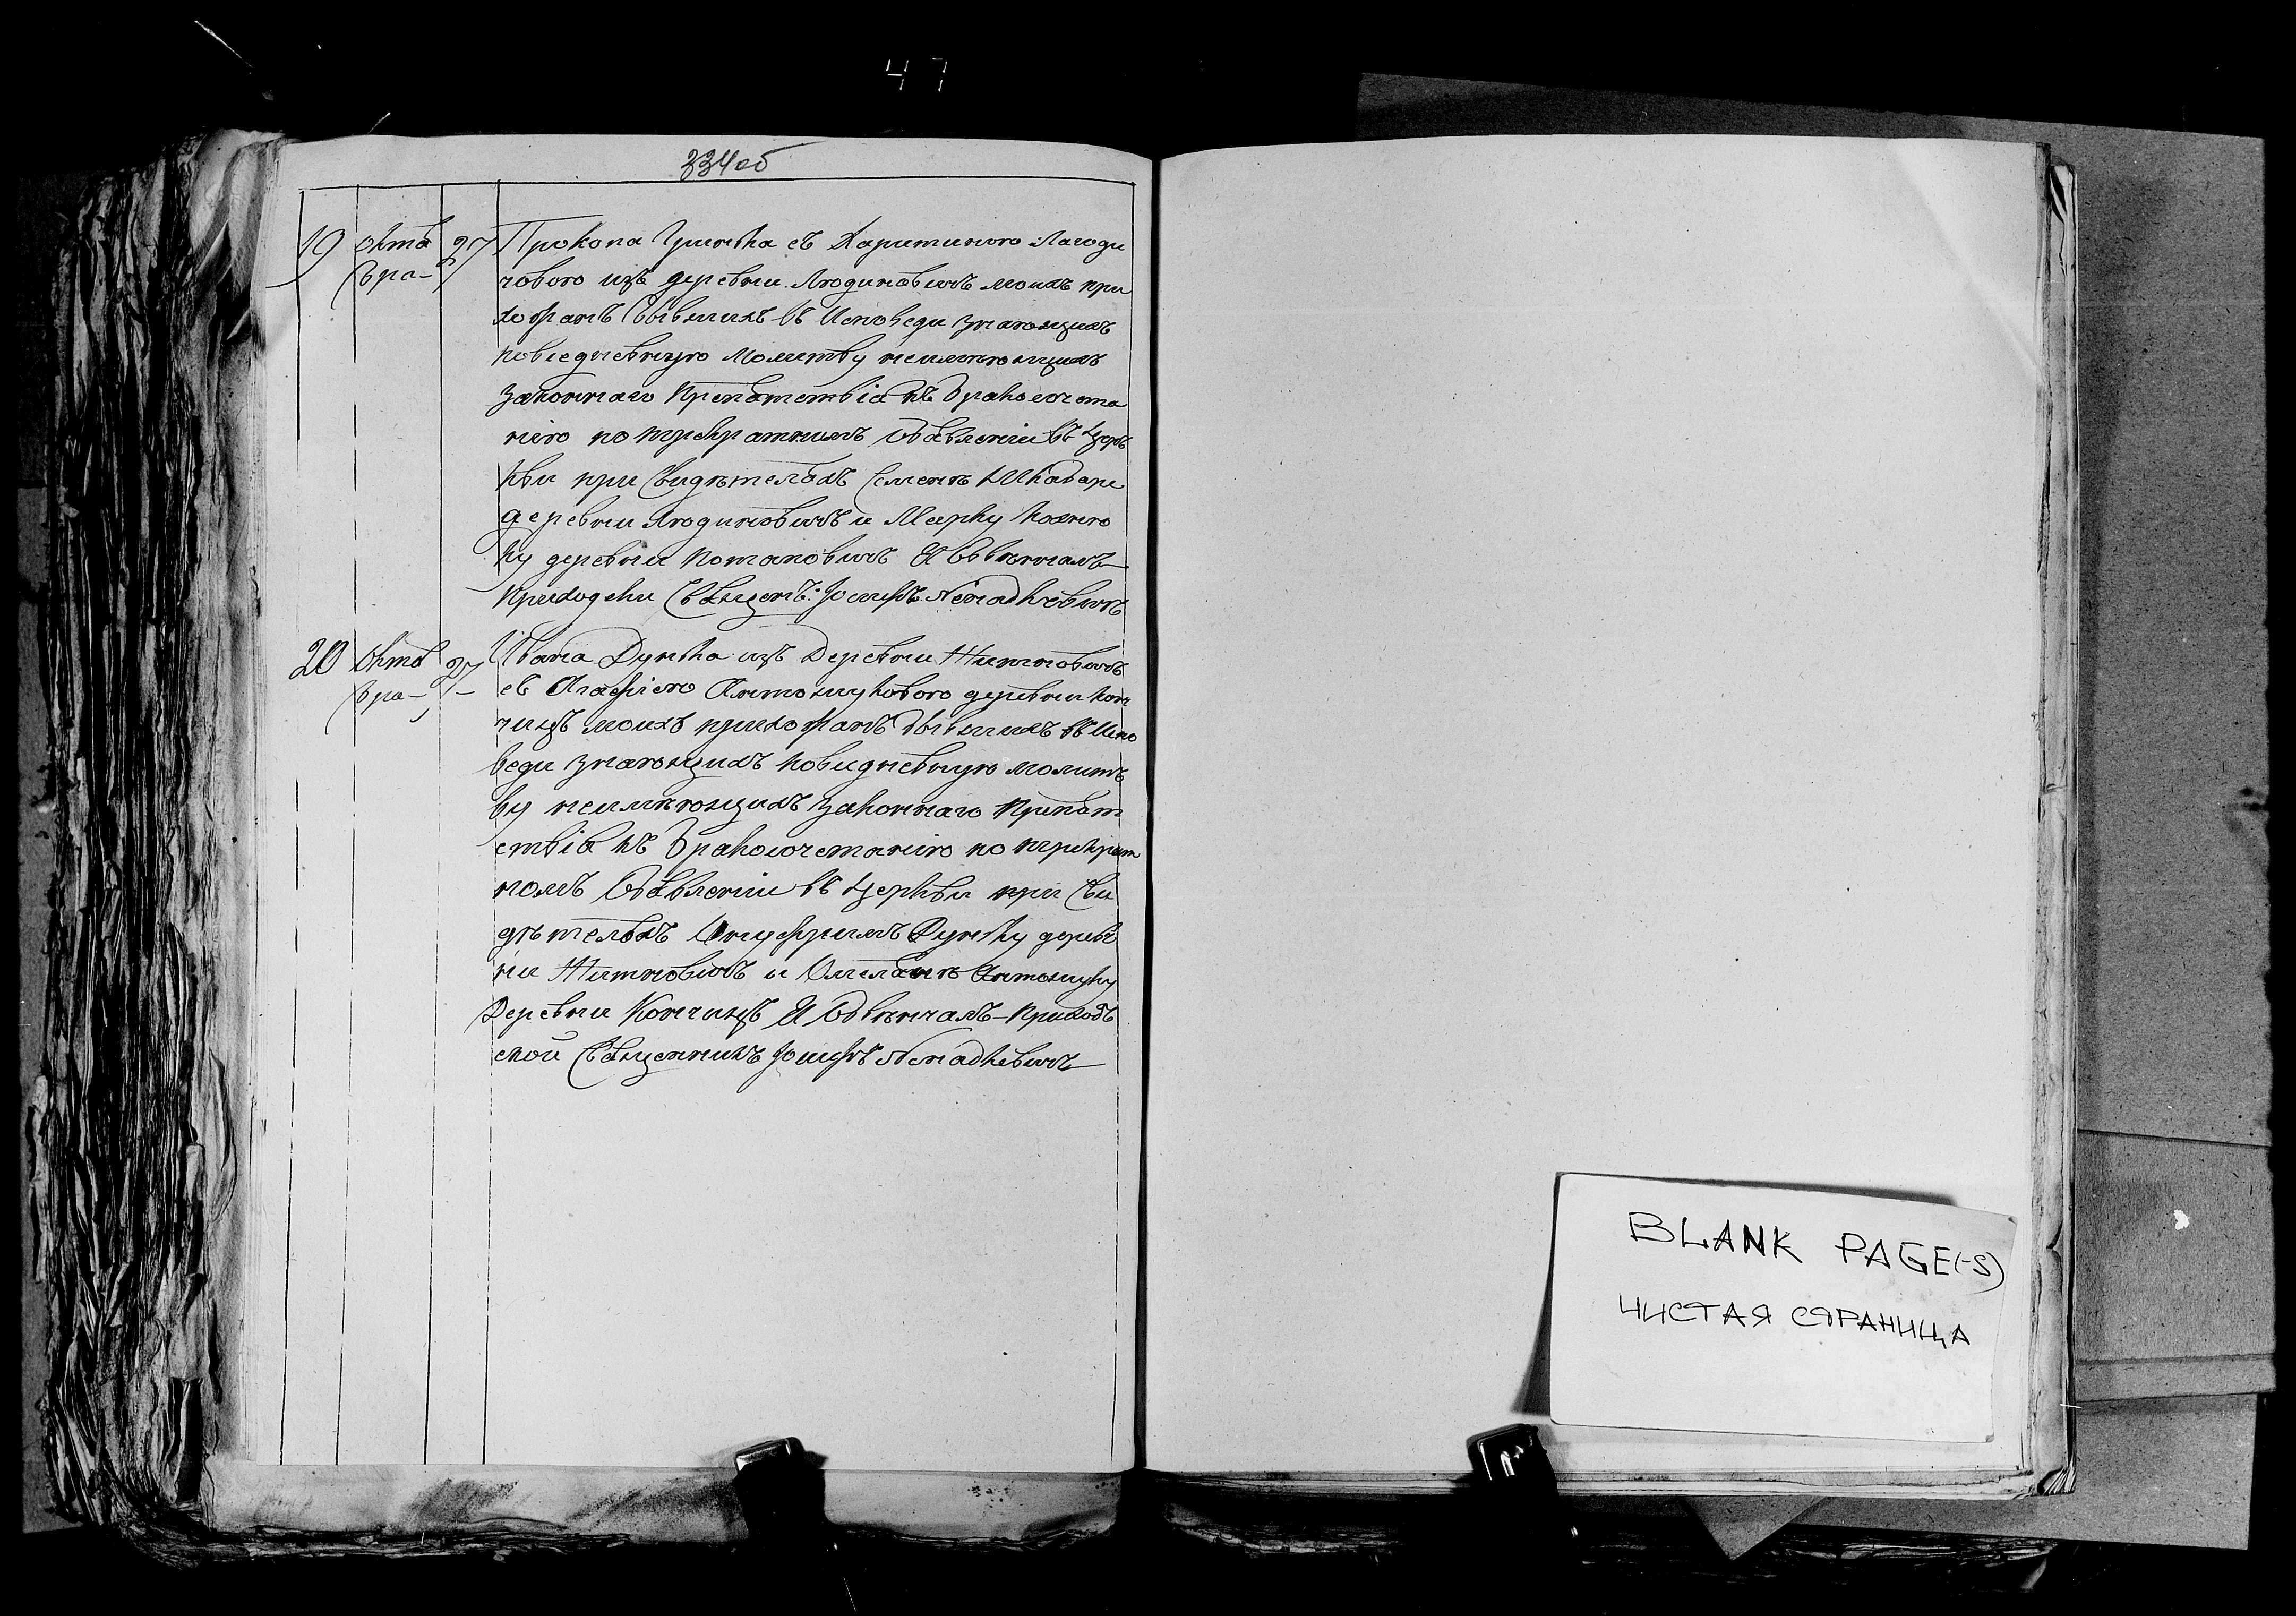 47
334 об
19 Октя 27 Прокопа Гринька съ Харитиною Лагоди
бра- човою изъ деревни Людиновичъ моихъ при
хожанъ бывшихъ въ Исповеди знающихъ
повседневную Молитву неимѣющихъ
Законнаго Препятствія къ Бракосочета
нію по троекратнимъ Обявленіи въ Цер
кви при Свидѣтеляхъ Семенѣ
деревни Людиновичъ и Марку
ку деревни Потаповичъ И Обвѣнчалъ
Приходски Свящеn: Іосифъ
20 Октя 27 Ивана Дунька изъ Деревни Житновичъ
бра- съ Агафіею Антошуковою деревни Кон
чицъ моихъ прихожанъ бывшихъ въ Испо
веди знающихъ повидневную молит
ву неимѣющихъ Законнаго Препят
ствія къ Бракосочетанію по троекрат
номъ Обявленіи въ Церкви при Сви
дѣтеляхъ Онуфримъ Дуньку дерев
ни Житновичъ и Омелянѣ Антошуку
Деревни Кончицъ И Обвѣнчалъ- Приход
ской Священникъ Іосифъ
BLANK PAGE(-S)
ЧИСТАЯ СТРАНИЦА